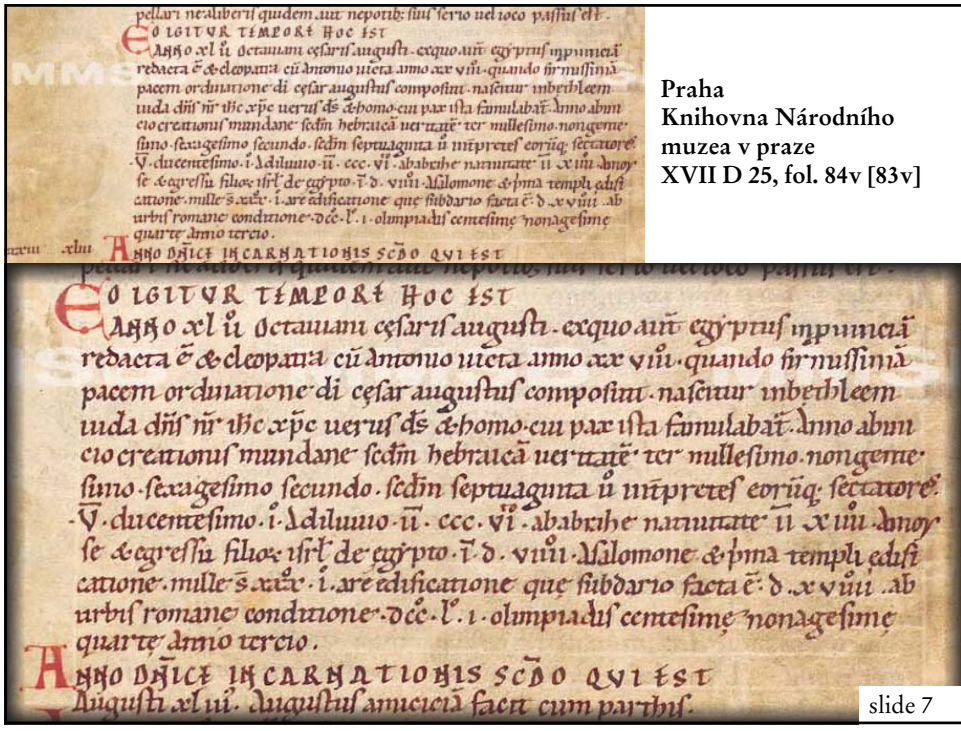 pellari ne aliberis quidem aut nepotib; suis serio uel ioco passus est.
EO IGITUR TEMPORE HOC EST
ANNO xl ii Octauiani cęsaris augusti. exquo aut egyptus inpuinciā
redacta ē & cleopatra cū antonio uicta anno xx viii. quando firmissimā
pacem ordinatione di cęsar augustus composuit. nascitur inbethleem
iuda dn̄s nr̄ ihc xp̄c uerus ds̄ & homo. cui pax ista famulabat. Anno abini
cio creationis mundane scdm̄ hebraicā ueritatē ter millesimo. nongente
simo. sexagesimo secundo. scdm̄ septuaginta ū intpretes eorūq; sectatores.
V. ducentesimo. i. A diluuio. ii. ccc. vi. ab abrahe natiuitate ii x iiii. A moy
se & egressu filiorꝫ isrl̄ de egypto. ī d. viiii. A salomone & pma templi edifi
catione. mille s xxx. i. a reedificatione quę subdario facta ē. d. x viiii. ab
urbis romane conditione. dcc. l. i. olimpiadis centesimę nonagesimę
quartę anno tercio.
xliii
ANNO DNICE INCARNATIONIS SCDO QVI EST
Praha
Knihovna Národního
muzea v praze
XVII D 25, fol. 84v [83v]
EO IGITUR TEMPORE HOC EST
ANNO xl ii Octauiani cęsaris augusti. exquo aut egyptus inpuinciā
redacta ē & cleopatra cū antonio uicta anno xx viii. quando firmissimā
pacem ordinatione di cęsar augustus composuit. nascitur inbethleem
iuda dn̄s nr̄ ihc xp̄c uerus ds̄ & homo. cui pax ista famulabat. Anno abini
cio creationis mundane scdm̄ hebraicā ueritatē ter millesimo. nongente
simo. sexagesimo secundo. scdm̄ septuaginta ū intpretes eorūq; sectatores.
V. ducentesimo. i. A diluuio. ii. ccc. vi. ab abrahe natiuitate ii x iiii. A moy
se & egressu filiorꝫ isrl̄ de egypto. ī d. viiii. A salomone & pma templi edifi
catione. mille s xxx. i. a reedificatione quę subdario facta ē. d. x viiii. ab
urbis romane conditione. dcc. l. i. olimpiadis centesimę nonagesimę
quartę anno tercio.
ANNO DNICE INCARNATIONIS SCDO QVI EST
Augusti xl iii. Augustus amiciciā facit cum parthis.
slide 7